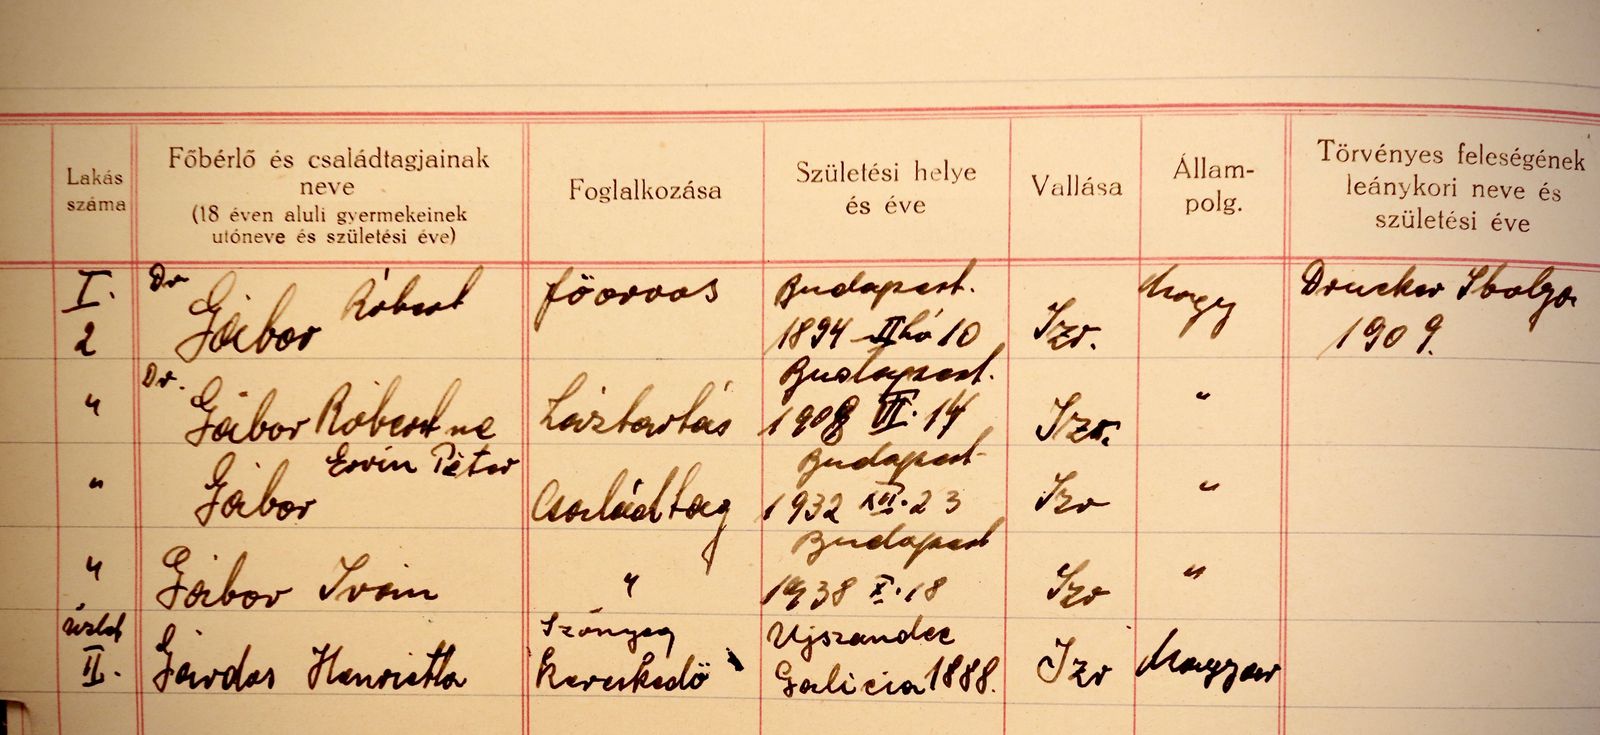 Lakás
száma
Főbérlő és családtagjainak
neve
(18 éven aluli gyermekeinek
utóneve és születési éve)
Foglalkozása
Születési helye
és éve
Vallása
Állam-
polg.
Törvényes feleségének
leánykori neve és
születési éve
I.
2
Dr
Gábor Róbert
főorvos
Budapest.
1894 II hó 10
Izr.
Magy
Drucker Ibolya
1909.
"
Dr.
Gábor Róbert ne
Háztartás
Budapest.
1908 VI. 14
Izr.
"
"
Gábor Ervin Péter
Családtag
Budapest
1932 XII. 23
Izr
"
"
Gábor Iván
"
Budapest
1938 X. 18
Izr
"
üzlet
II.
Gárdos Henrietta
Szőnyeg
kereskedő
Ujszandec
Galicia 1888.
Izr
Magyar